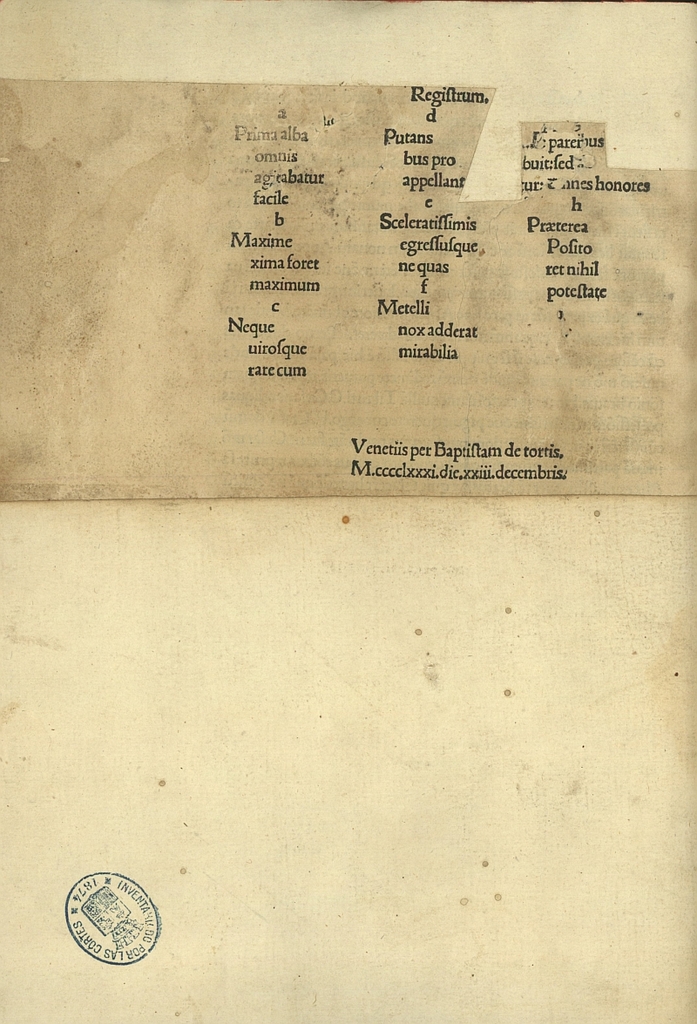 Regiſtrum.
a
Prima alba
omnis
agitabatur
facile
b
Maxime
xima foret
maximum
c
Neque
uiroſque
rate cum
d
Putans
bus pro
appellant
e
Sceleratiſſimis
egreſſuſque
ne quas
f
Metelli
nox adderat
mirabilia
paribus
buit:ſed
tur: honores
h
Præterea
Poſito
ret nihil
poteſtate
Venetiis per Baptiſtam de tortis.
M.cccclxxxi.die.xxiii.decembris.
INVENTARIADO POR LAS CORTES
1874